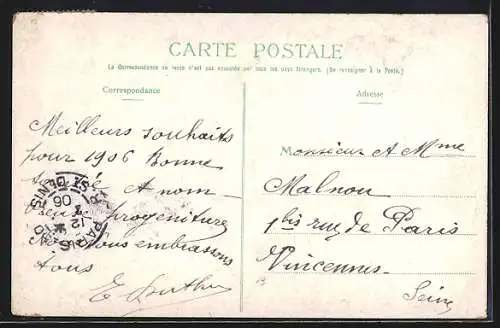 CARTE POSTALE
La Correspondance au recto n'est pas acceptée par tous les pays étrangers. (Se renseigner à la Poste.)
Correspondance
Adresse
Meilleurs souhaits
pour 1906 Bonne
et nom-
breuse progeniture
Nous vous embrassons
tous
Monsieur et Mme
Malnou
1 bis rue de Paris
Vincennes
Seine
PARIS
06